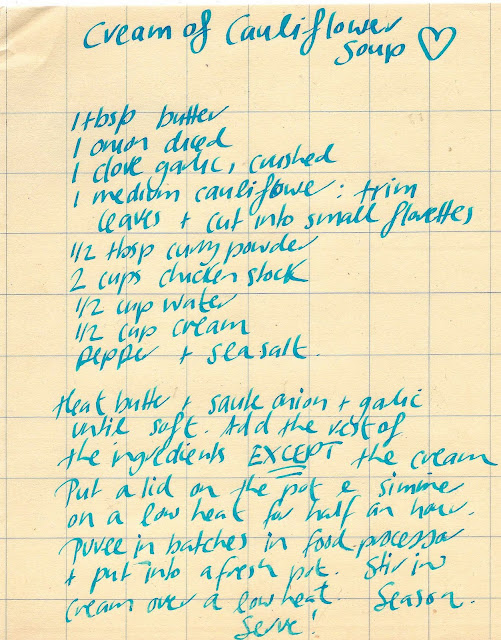 Cream of Cauliflower
Soup ♡
1 tbsp butter
1 onion diced
1 clove garlic, crushed
1 medium cauliflower: trim
leaves + cut into small florettes
1/2 tbsp curry powder
2 cups chicken stock
1/2 cup water
1/2 cup cream
pepper + sea salt.
Heat butter + saute onion + garlic
until soft. Add the rest of
the ingredients EXCEPT the cream
Put a lid on the pot & simmer
on a low heat for half an hour.
Puree in batches in food processor
+ put into a fresh pot. Stir in
cream over a low heat. Season.
Serve!